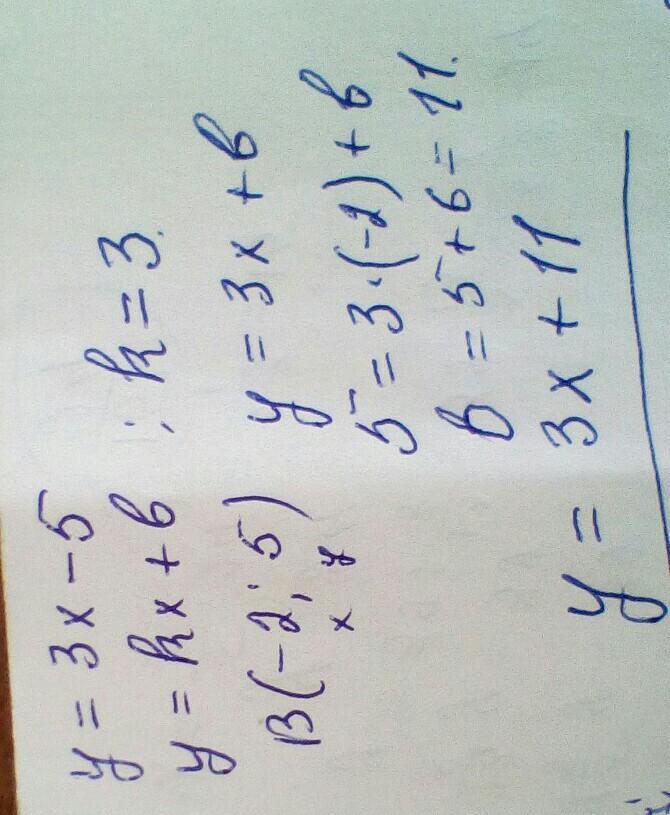 y = 3x - 5
y = kx + b ; k = 3.
B(-2; 5)
x y
y = 3x + b
5 = 3·(-2) + b
b = 5 + 6 = 11.
y = 3x + 11